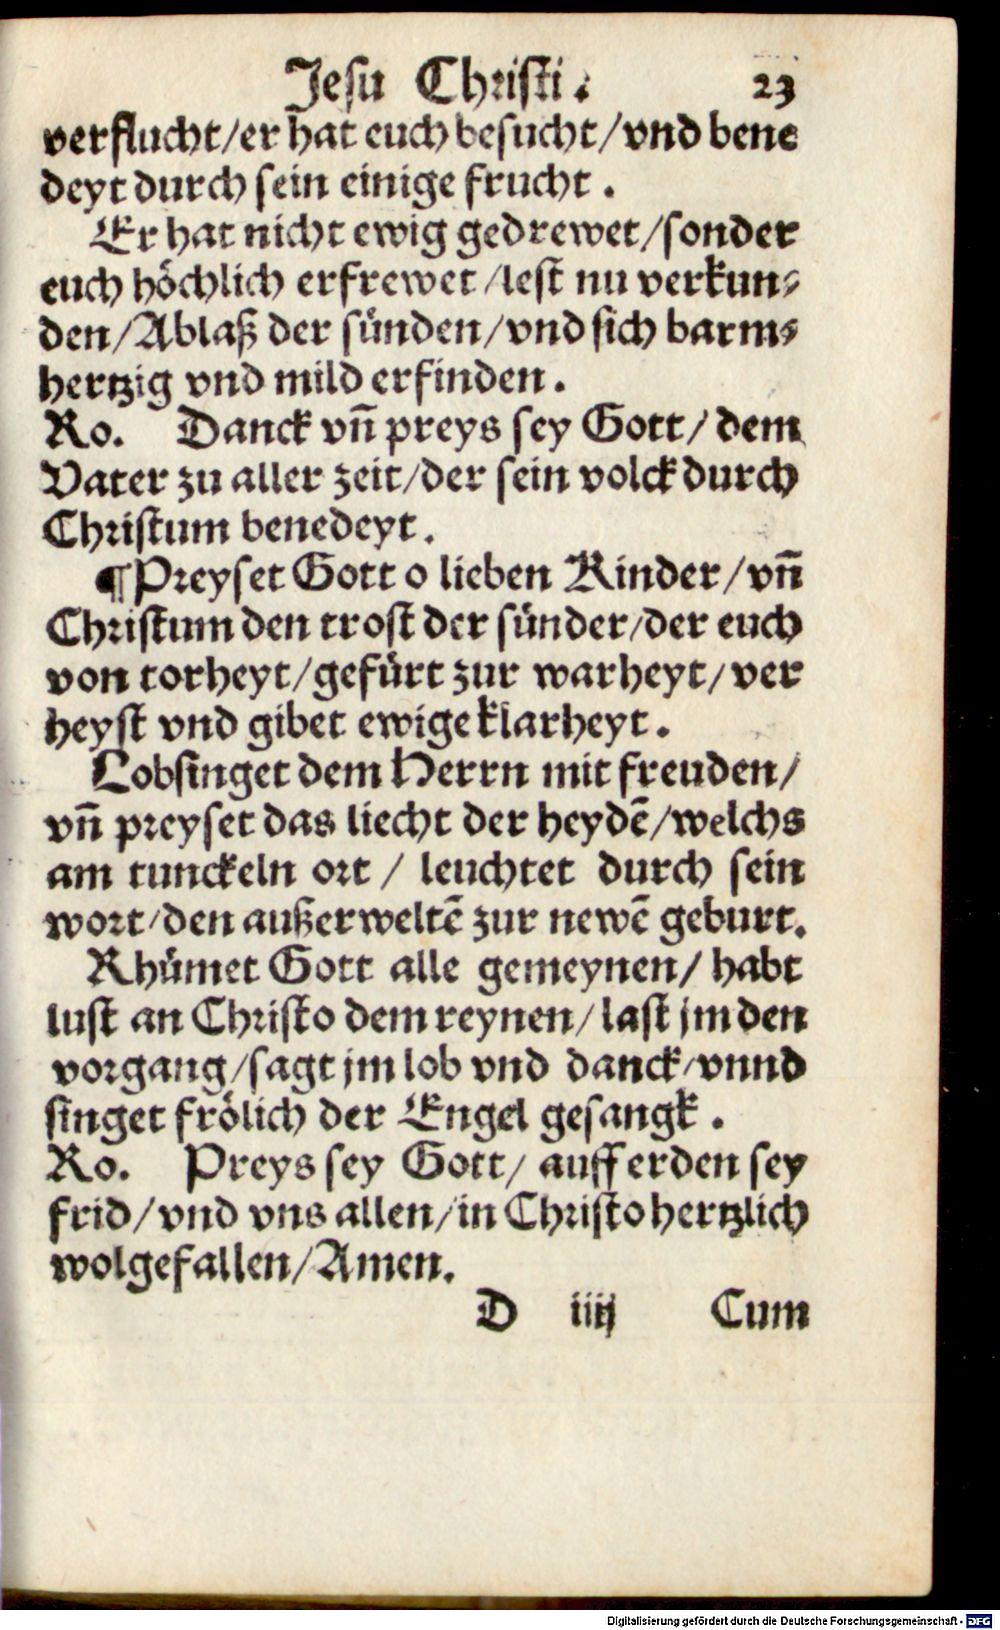 Jesu Christi. 23
verflucht/er hat euch besucht/vnd bene
deyt durch sein einige frucht.
Er hat nicht ewig gedrewet/sonder
euch höchlich erfrewet/lest nu verkun⸗
den/Ablaß der sünden/vnd sich barm⸗
hertzig vnd mild erfinden.
Ro. Danck vn̄ preys sey Gott/dem
Vater zu aller zeit/der sein volck durch
Christum benedeyt.
¶Preyset Gott o lieben Kinder/vn̄
Christum den trost der sünder/der euch
von torheyt/gefürt zur warheyt/ver
heyst vnd gibet ewige klarheyt.
Lobsinget dem Herrn mit freuden/
vn̄ preyset das liecht der heydē/welchs
am tunckeln ort/leuchtet durch sein
wort/den außerweltē zur newē geburt.
Rhümet Gott alle gemeynen/habt
lust an Christo dem reynen/last jm den
vorgang/sagt jm lob vnd danck/vnnd
singet frölich der Engel gesangk.
Ro. Preys sey Gott/auff erden sey
frid/vnd vns allen/in Christo hertzlich
wolgefallen/Amen.
D iiij Cum
Digitalisierung gefördert durch die Deutsche Forschungsgemeinschaft - DFG